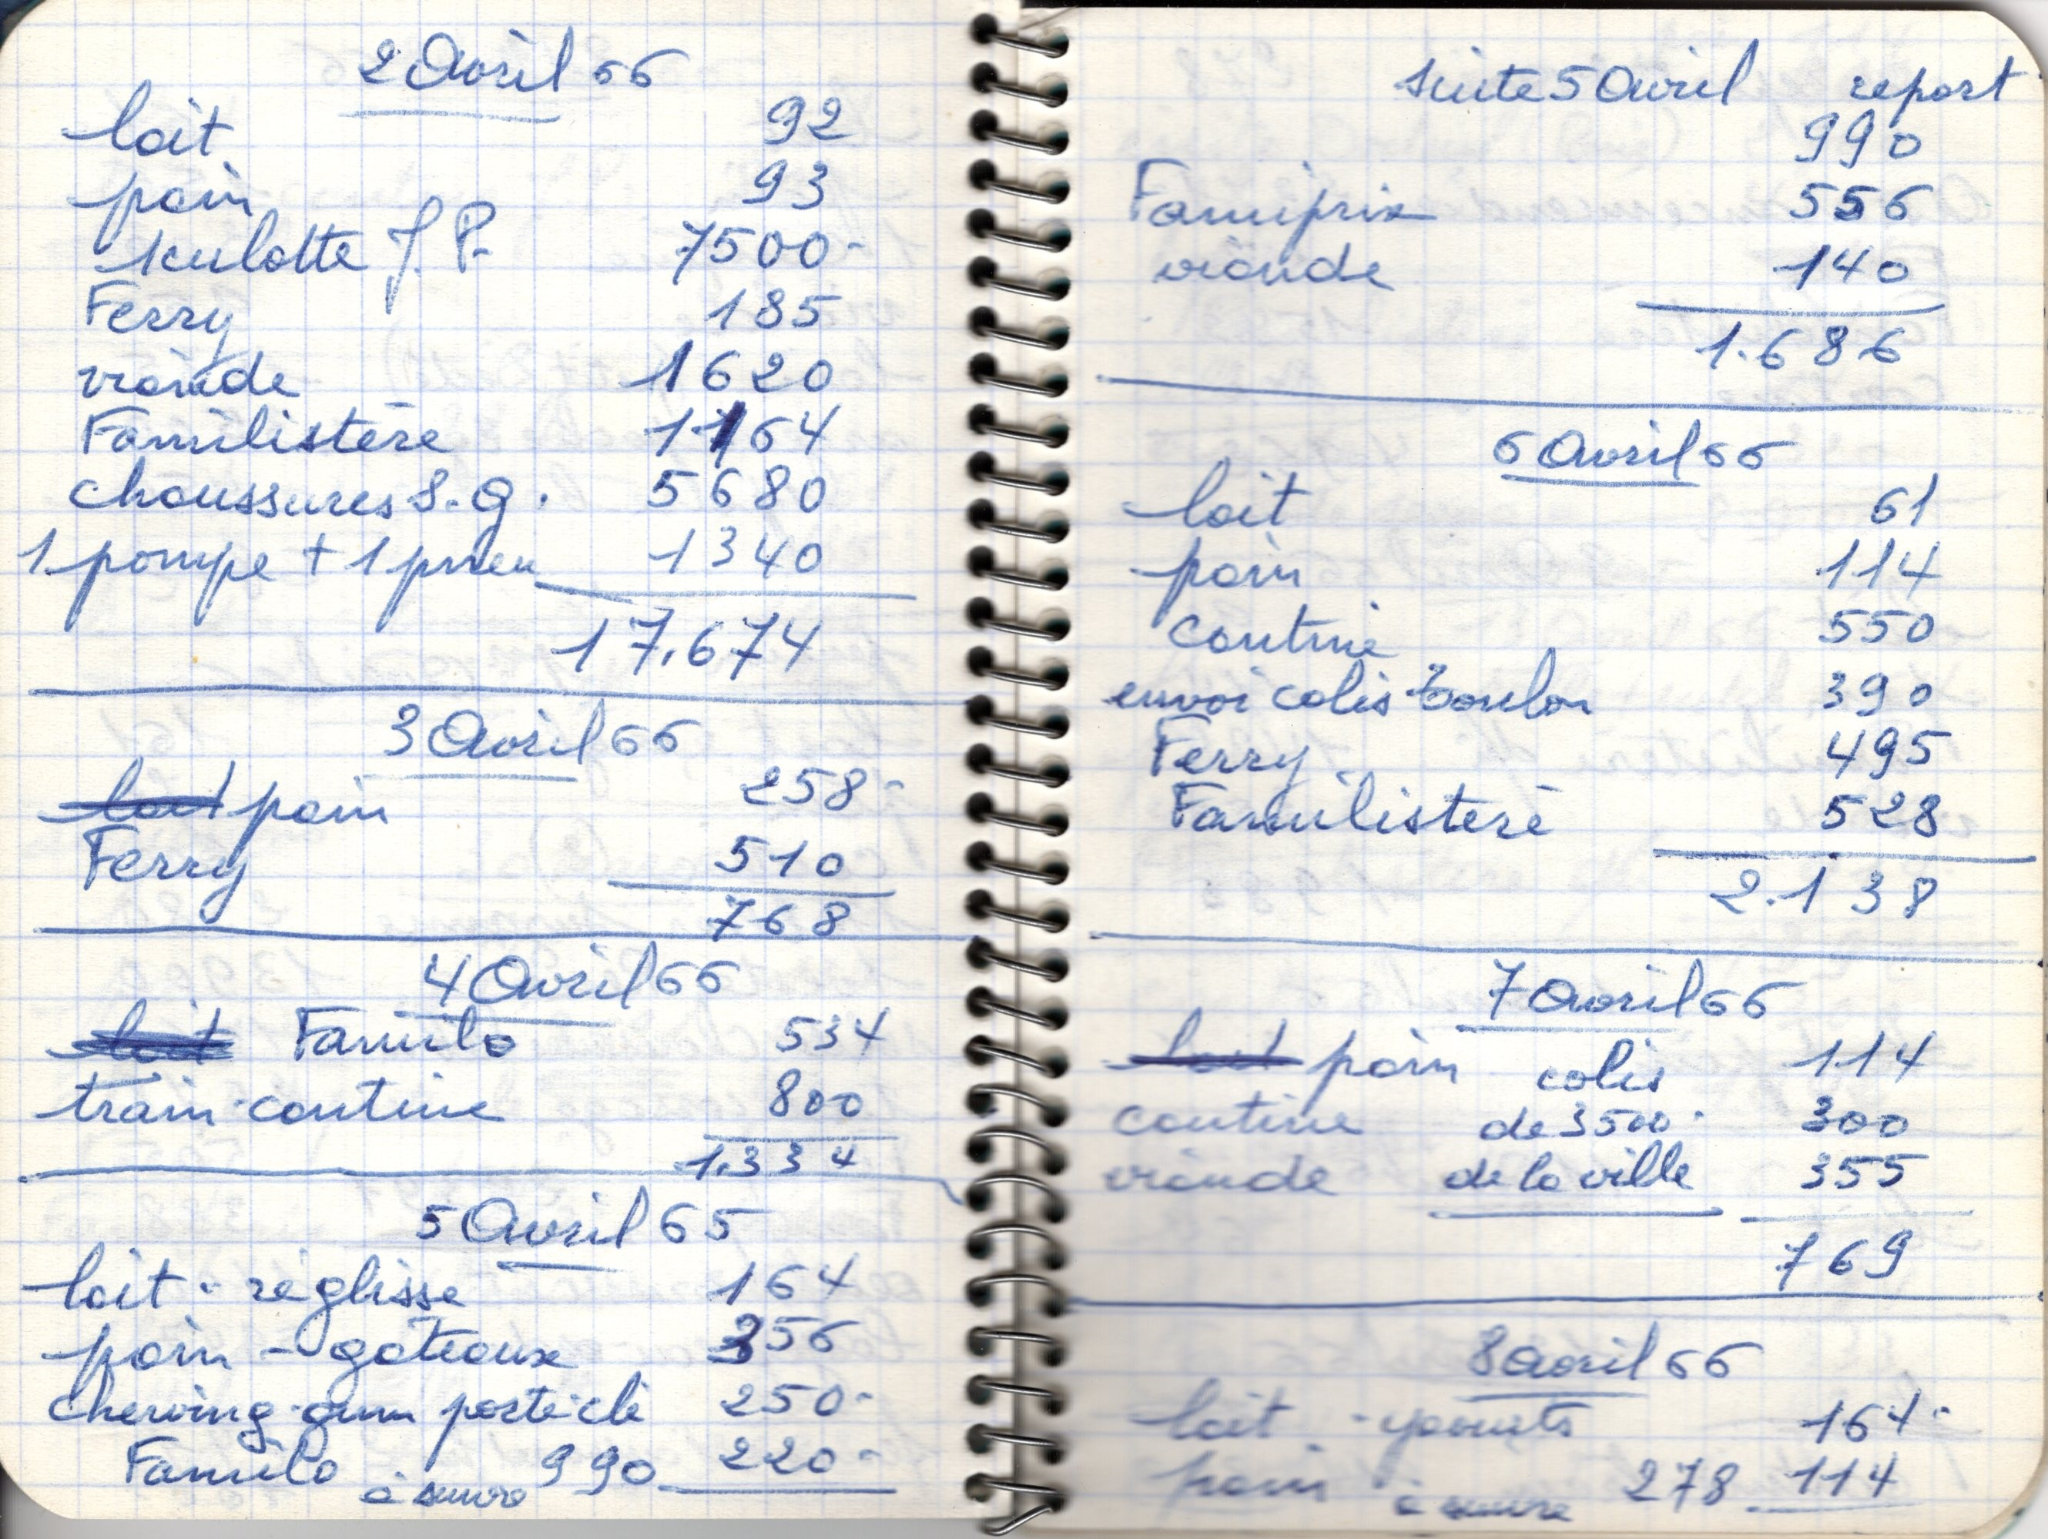 2 Avril 66
lait 92
pain 93
1 culotte J. P. 7500-
Ferry 185
viande 1620
Familistère 1164
chaussures S.G. 5680
1 pompe + 1 pneu 1340
17.674
3 Avril 66
lait pain 258-
Ferry 510
768
4 Avril 66
lait Familo 534
train-cantine 800
1.334
5 Avril 65
lait - réglisse 164
pain - gateaux 356
chewing-gum porte clé 250-
Familo 990 220-
à suivre
suite 5 Avril report
990
Familprix 556
viande 140
1.686
6 Avril 66
lait 61
pain 114
cantine 550
envoi colis Toulon 390
Ferry 495
Familistère 528
2.138
7 Avril 66
lait pain colis 114
cantine de 3500- 300
viande de la ville 355
769
8 Avril 66
lait - yaourts 164-
pain à suivre 278 114